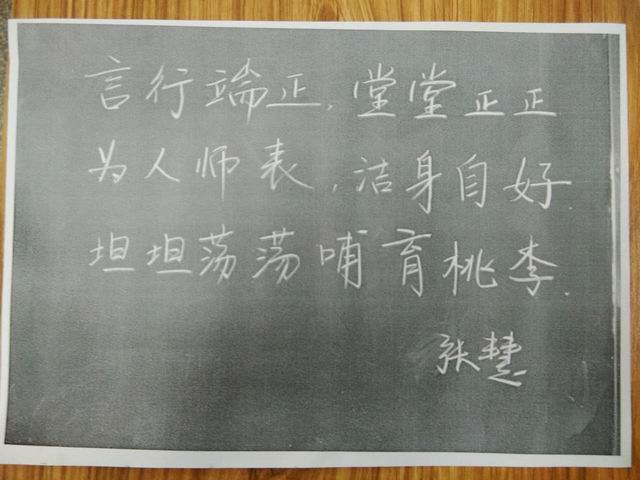 言行端正,堂堂正正
为人师表,洁身自好.
坦坦荡荡哺育桃李.
张慧